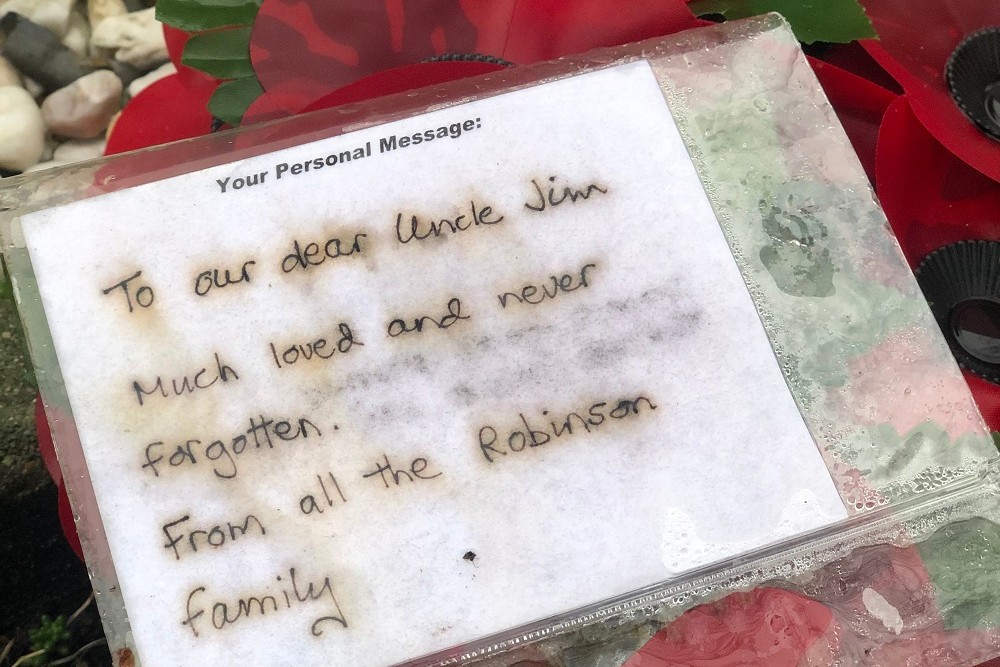 Your Personal Message:
To our dear Uncle Jim
Much loved and never
forgotten.
From all the Robinson
family